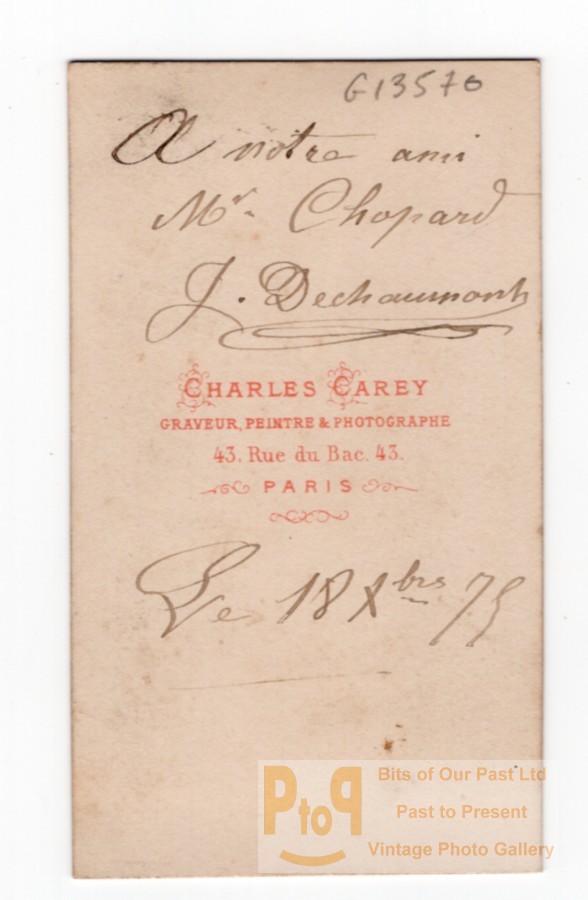 G13570
A notre ami
Mr. Chopard
J. Dechaumont
CHARLES CAREY
GRAVEUR, PEINTRE & PHOTOGRAPHE
43. Rue du Bac. 43.
PARIS
Le 18 Xbre 75
PtoP
Bits of Our Past Ltd
Past to Present
Vintage Photo Gallery